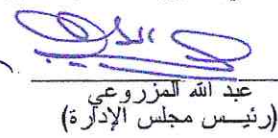 عبد الله المزروعي
(رئيـــس مجلس الإدارة)